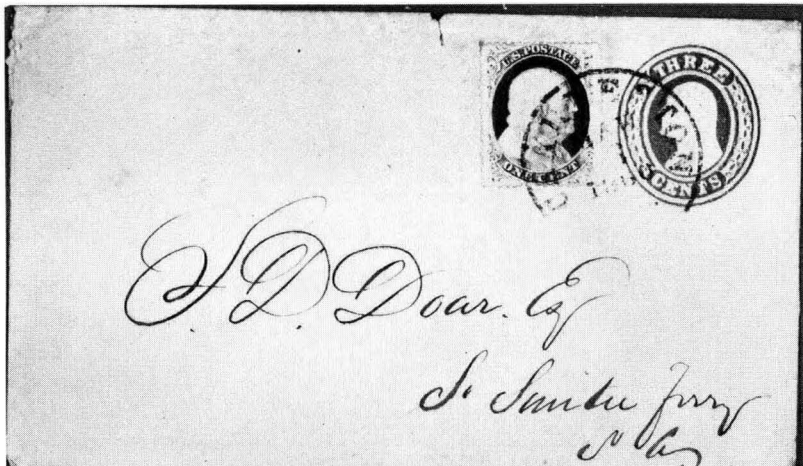 U.S. POSTAGE
ONE CENT
THREE
CENTS
S. D. Doar. Esq
So Santee ferry
So Ca